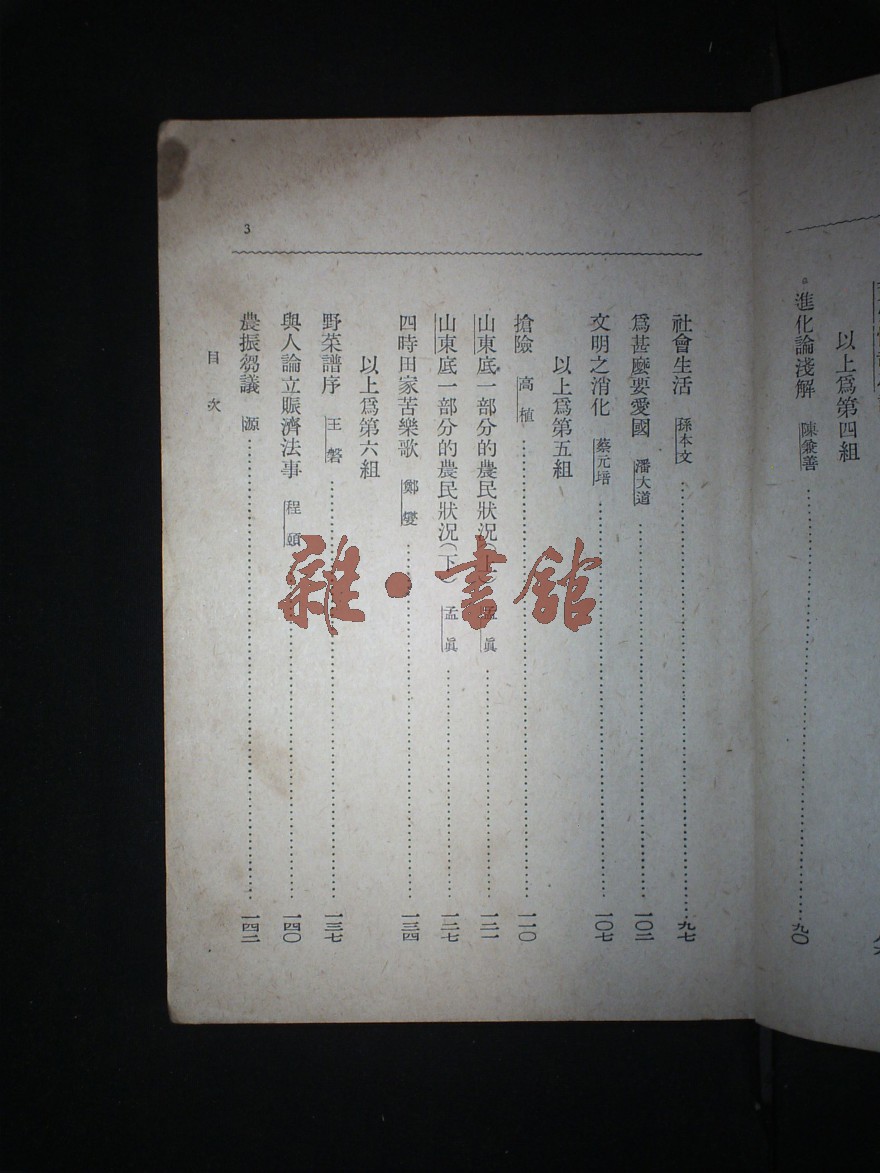 以上爲第四組
進化論淺解 陳兼善 九〇
社會生活 孫本文 九七
爲甚麼要愛國 潘大道 一〇二
文明之消化 蔡元培 一〇七
以上爲第五組
搶險 高植 一一〇
山東底一部分的農民狀況(上) 孟眞 一二一
山東底一部分的農民狀況(下) 孟眞 一二七
四時田家苦樂歌 鄭燮 一三四
以上爲第六組
野菜譜序 王磐 一三七
與人論立賬濟法事 程頤 一四〇
農振芻議 源 一四二
目次
3
雜·書館